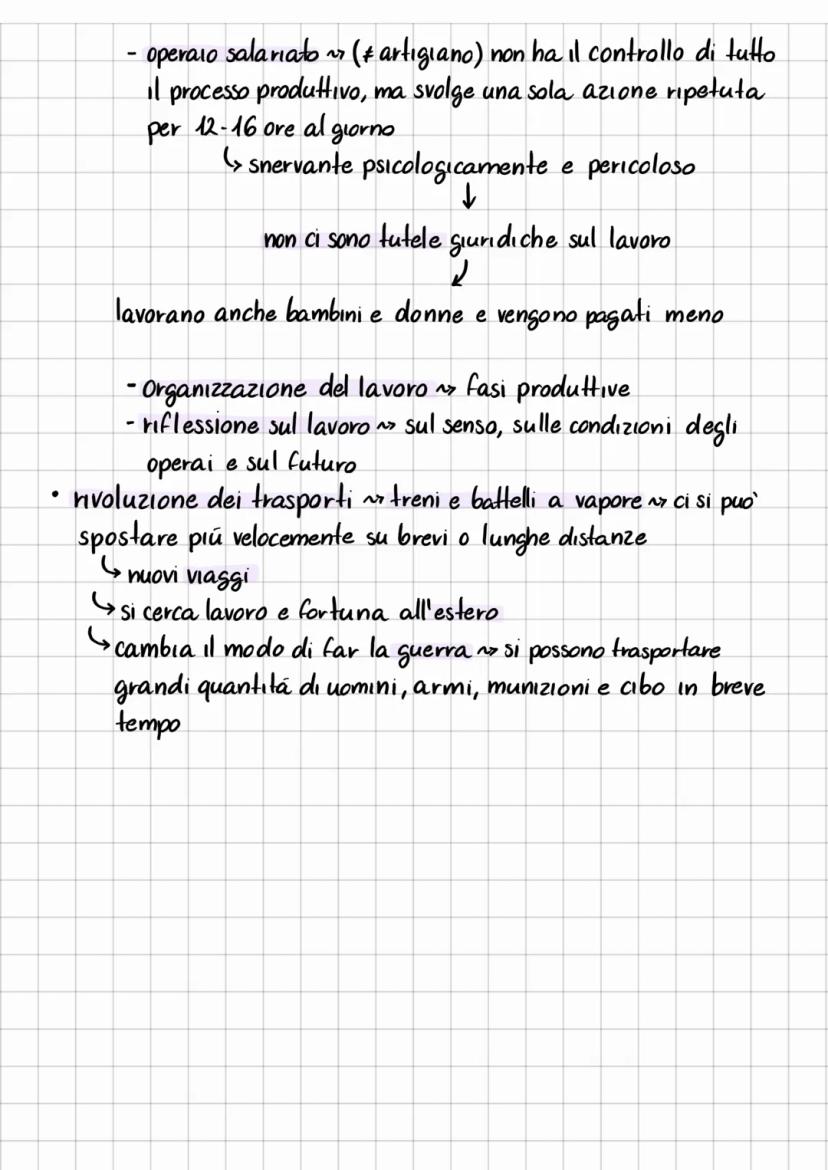 - operaio salariato ~> (≠ artigiano) non ha il controllo di tutto
il processo produttivo, ma svolge una sola azione ripetuta
per 12-16 ore al giorno
↳ snervante psicologicamente e pericoloso
↓
non ci sono tutele giuridiche sul lavoro
↙
lavorano anche bambini e donne e vengono pagati meno
- organizzazione del lavoro ~> fasi produttive
- riflessione sul lavoro ~> sul senso, sulle condizioni degli
operai e sul futuro
• rivoluzione dei trasporti ~> treni e battelli a vapore ~> ci si puo'
spostare piú velocemente su brevi o lunghe distanze
↳ nuovi viaggi
↳ si cerca lavoro e fortuna all'estero
↳ cambia il modo di far la guerra ~> si possono trasportare
grandi quantitá di uomini, armi, munizioni e cibo in breve
tempo